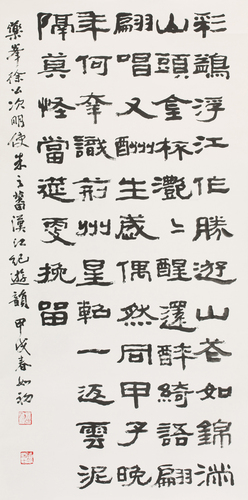 彩鷁浮江作勝遊山花如錦滿
山頭金杯灧〻醒還醉綺語翩
翩唱又酬生感偶然同甲子晚
年何幸識荊州星軺一返雲泥
隔莫怪當筵更挽留
藥峯徐公次明使朱之蕃漢江紀遊韻 甲戌春如初